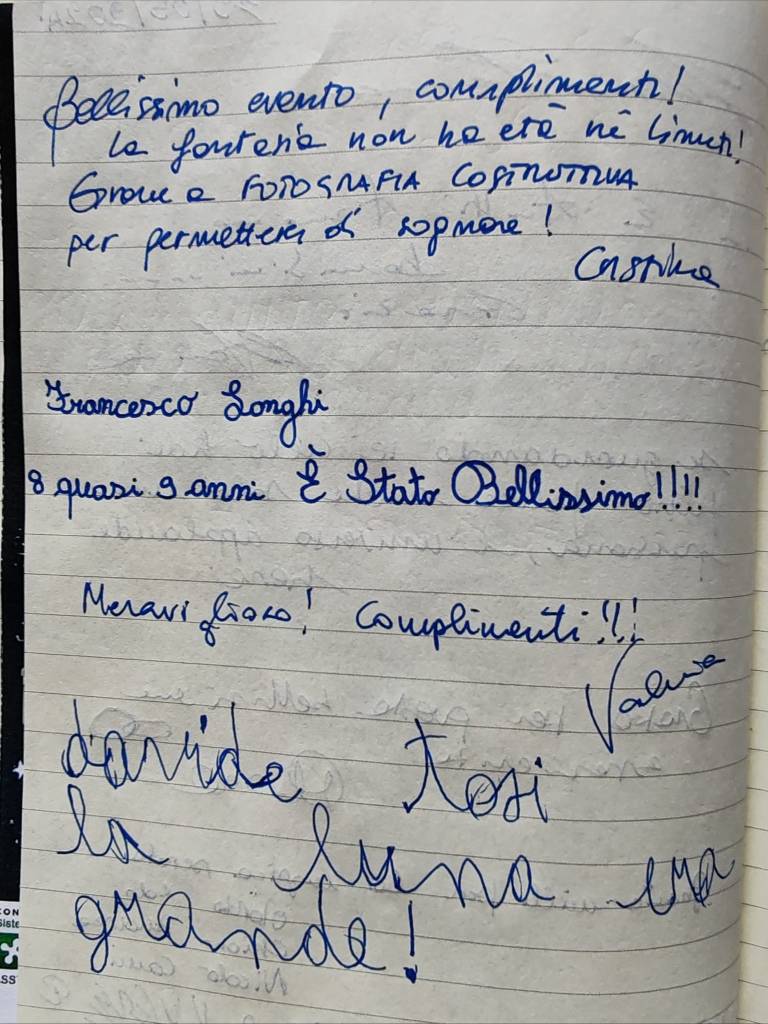 Bellissimo evento, complimenti!
la fantasia non ha età nè limiti!
Grazie a FOTOGRAFIA COSTRUTTIVA
per permetterci di sognare!
Cristina
Francesco Longhi
8 quasi 9 anni È Stato Bellissimo!!!!
Meraviglioso! Complimenti!!!
Valeria
davide tosi
la luna era
grande!